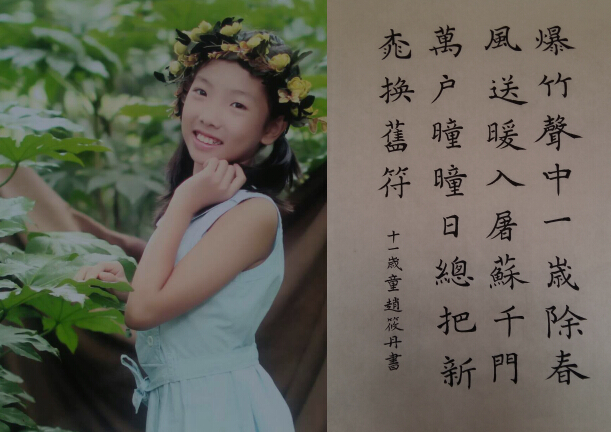 爆竹聲中一歲除春
風送暖入屠蘇千門
萬户曈曈日總把新
桃換舊符
十一歲童趙筱丹書